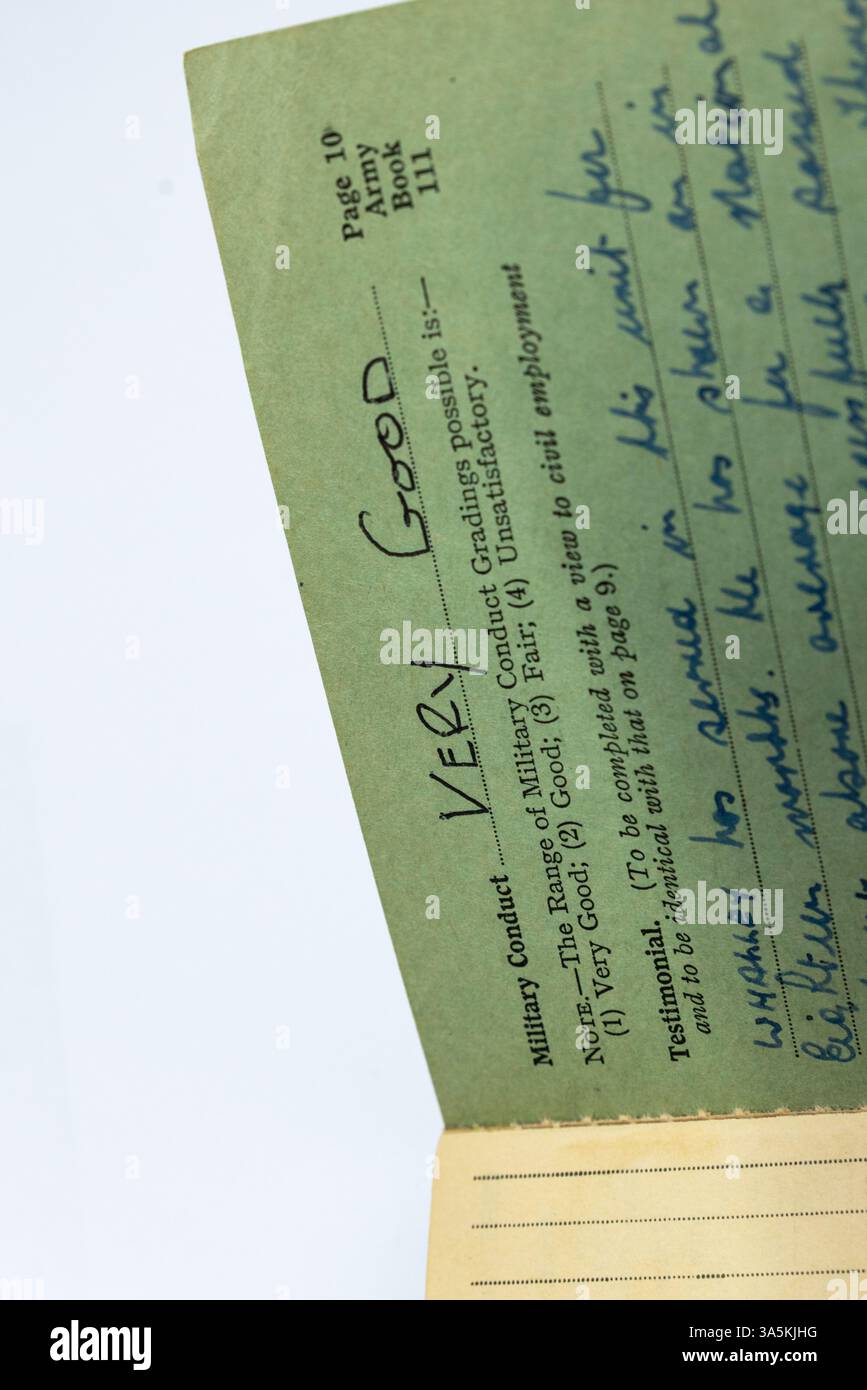 Page 10
Army
Book
111
Military Conduct VERY GOOD
NOTE.—The Range of Military Conduct Gradings possible is:—
(1) Very Good; (2) Good; (3) Fair; (4) Unsatisfactory.
Testimonial. (To be completed with a view to civil employment
and to be identical with that on page 9.)
WHALLEY has served in this unit for
Eighteen months. He has shown an in
above average for a national
passed
alamy
Image ID: 3A5KJHG
www.alamy.com